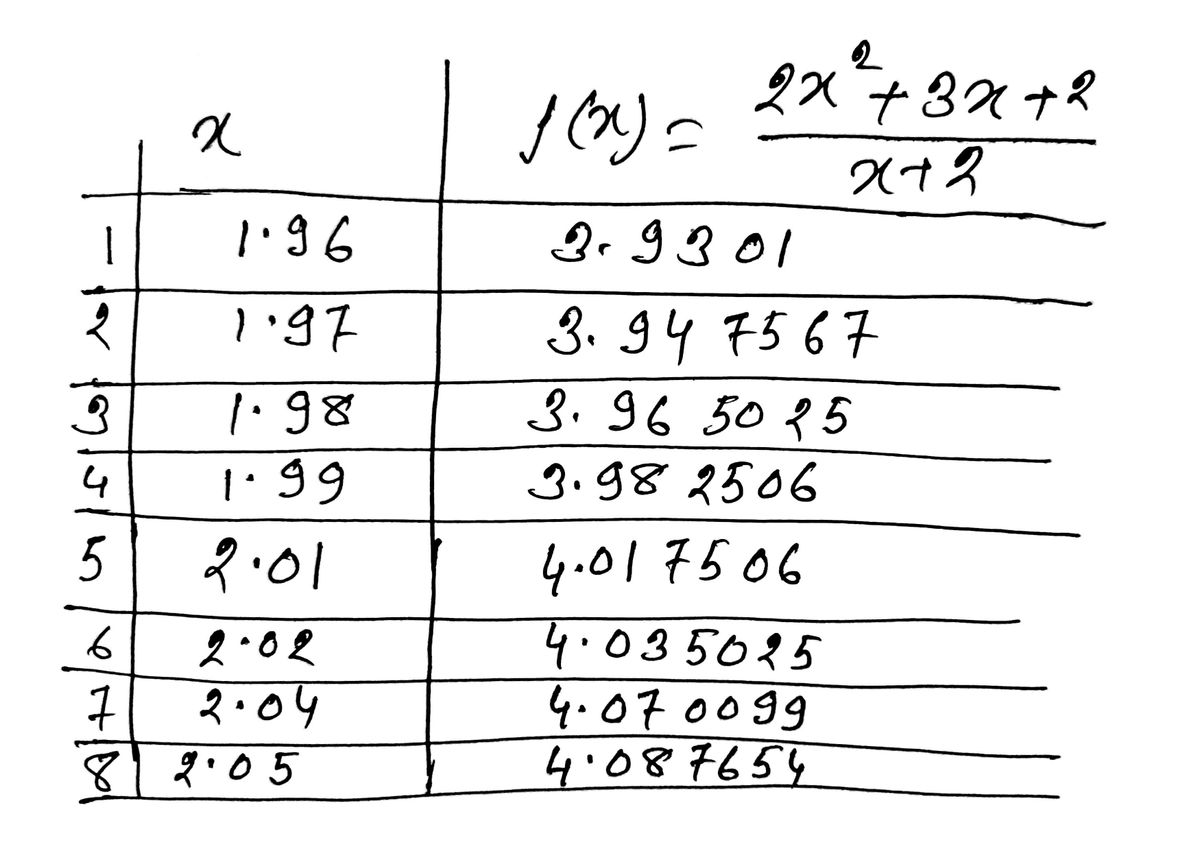 x f(x) = (2x²+3x+2)/(x+2)
1 1.96 3.9301
2 1.97 3.947567
3 1.98 3.965025
4 1.99 3.982506
5 2.01 4.017506
6 2.02 4.035025
7 2.04 4.070099
8 2.05 4.087654